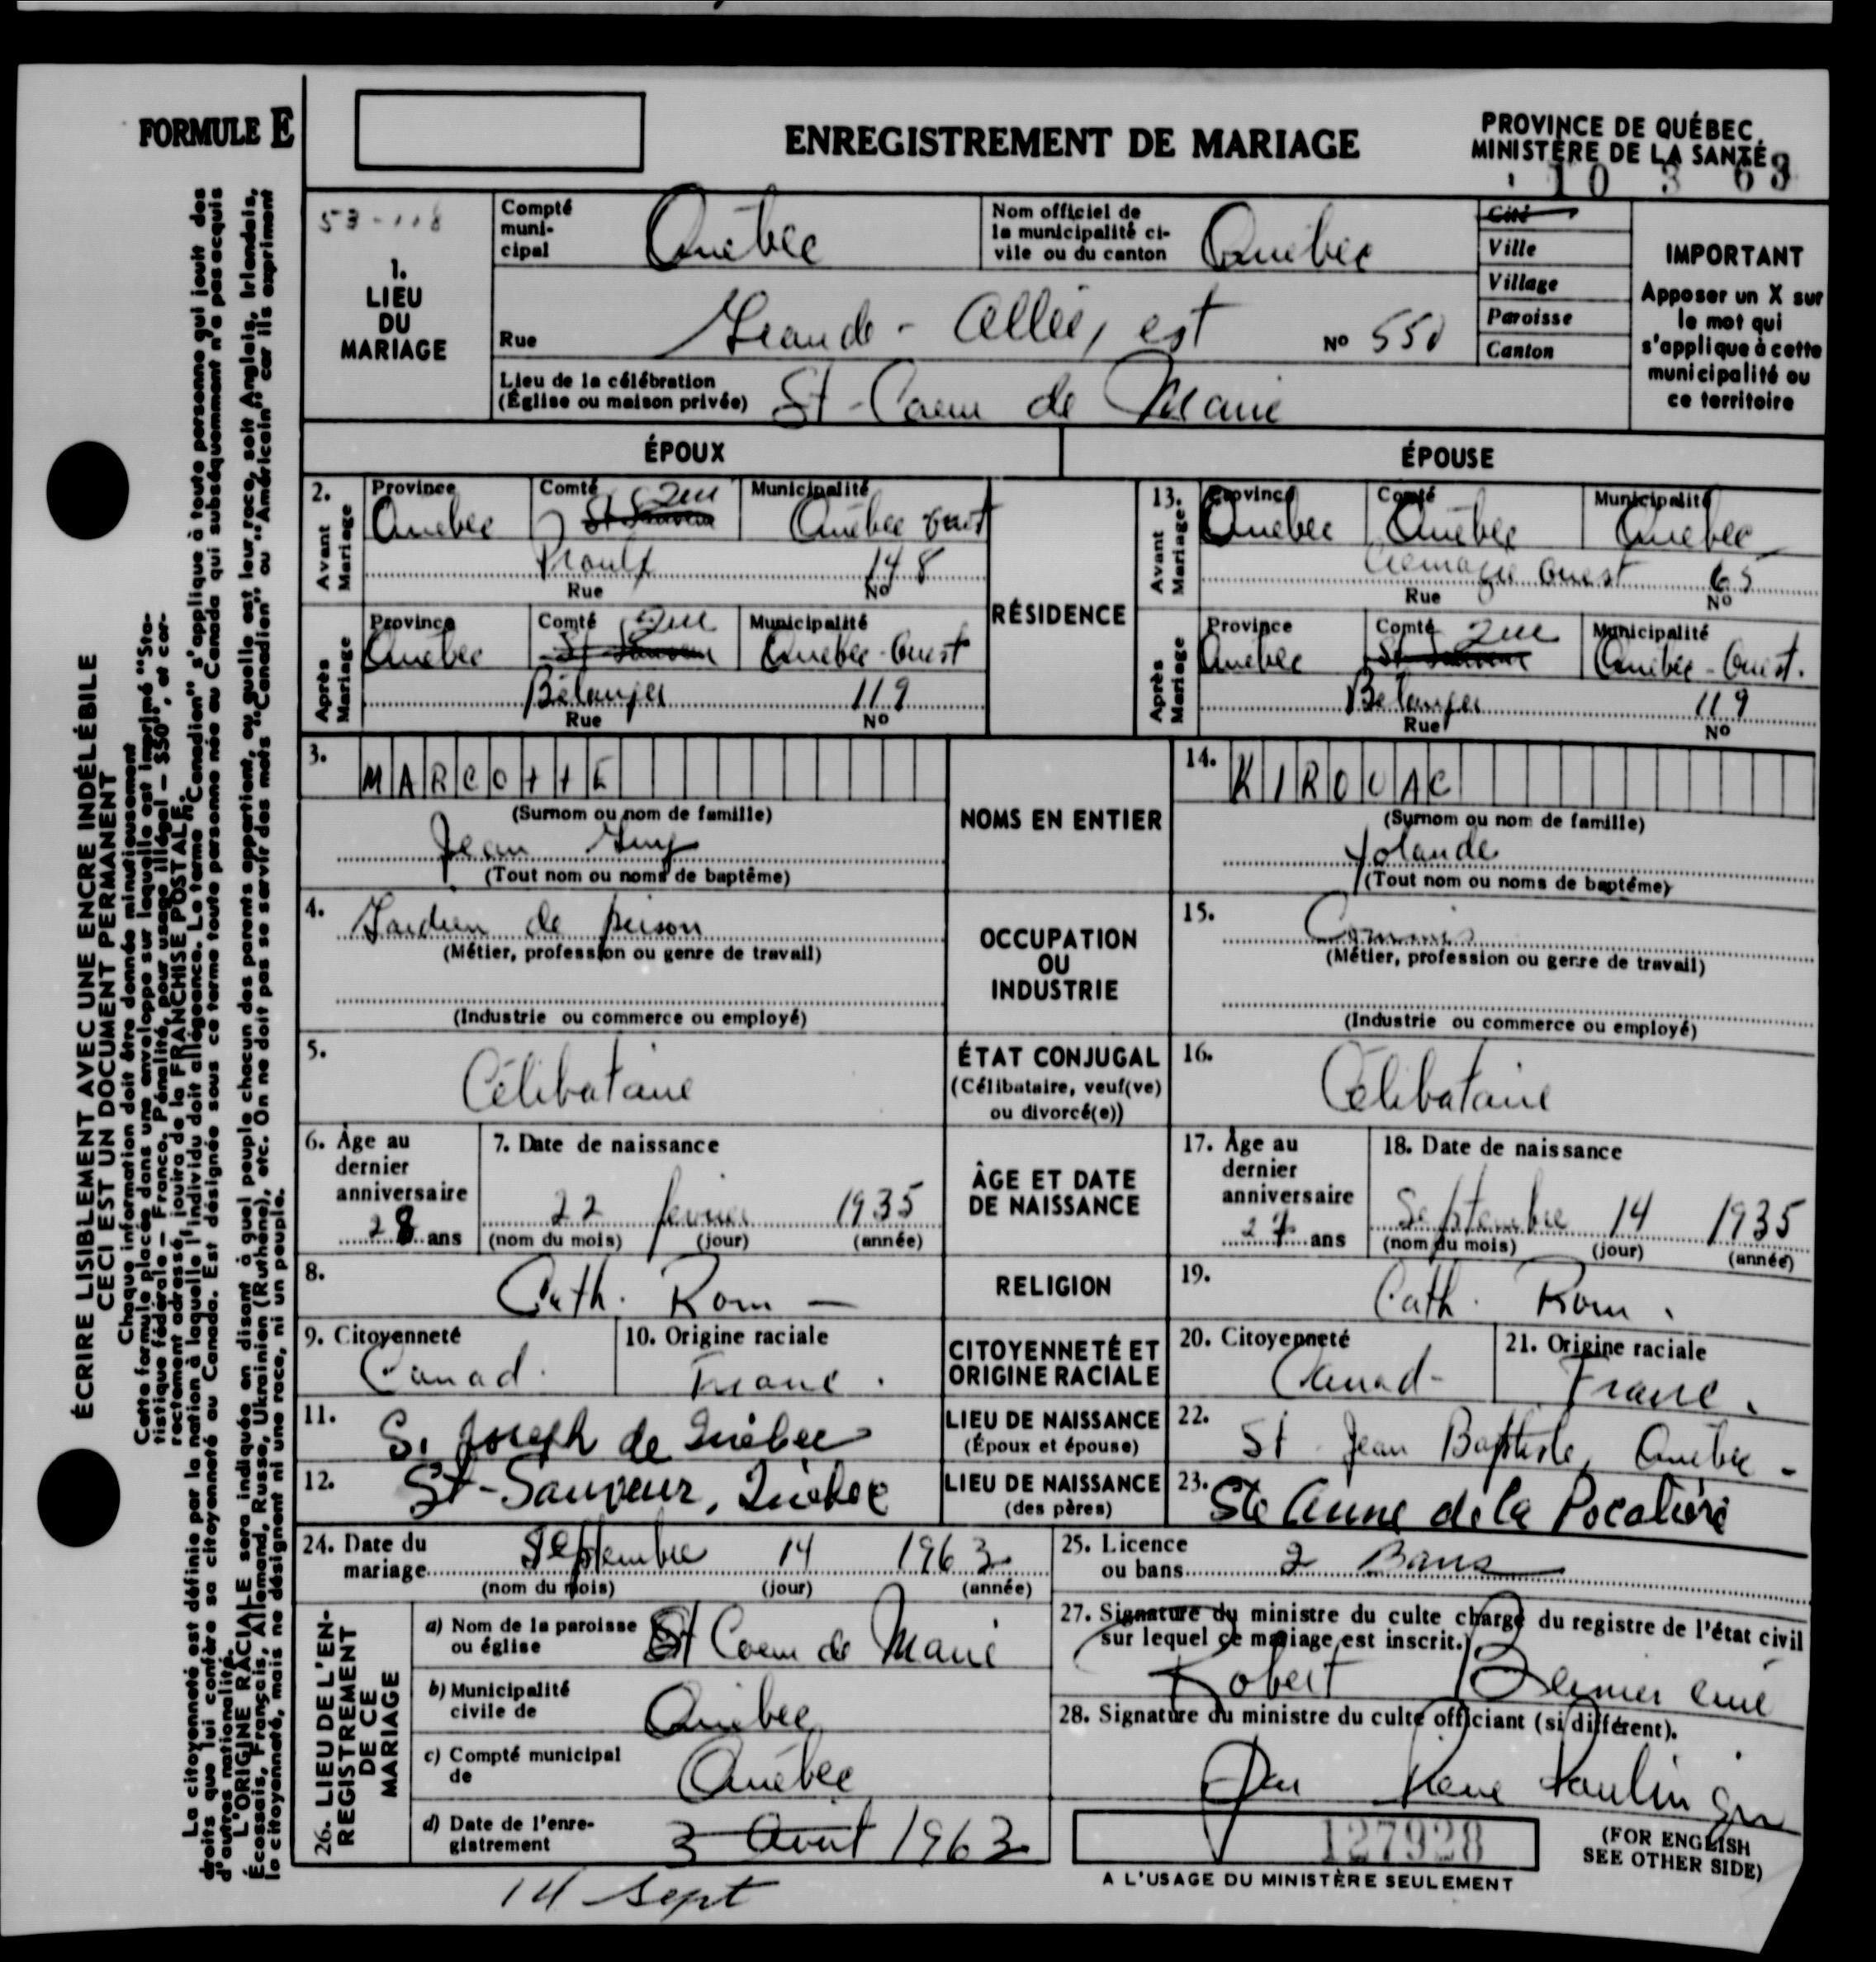 FORMULE E
ENREGISTREMENT DE MARIAGE
PROVINCE DE QUÉBEC
MINISTÈRE DE LA SANTÉ
10 3 63
53-118
1.
LIEU
DU
MARIAGE
Compté
muni-
cipal
Québec
Nom officiel de
la municipalité ci-
vile ou du canton
Québec
Cité
Ville
Village
Paroisse
Canton
IMPORTANT
Apposer un X sur
le mot qui
s'applique à cette
municipalité ou
ce territoire
Rue Grande-Allée, est No 550
Lieu de la célébration
(Église ou maison privée)
St-Coeur de Marie
ÉPOUX
ÉPOUSE
RÉSIDENCE
2.
Avant
Mariage
Province Comté Municipalité
Québec St Sauveur Que Québec ouest
Proulx 148
Rue No
Après
Mariage
Province Comté Municipalité
Québec St Sauveur Que Québec-Ouest
Bélanger 119
Rue No
13.
Avant
Mariage
Province Comté Municipalité
Québec Québec Québec
Crémazie ouest 65
Rue No
Après
Mariage
Province Comté Municipalité
Québec St Sauveur Que Québec-Ouest.
Bélanger 119
Rue No
3.
MARCOttE
(Surnom ou nom de famille)
Jean Guy
(Tout nom ou noms de baptême)
NOMS EN ENTIER
14.
KIROUAC
(Surnom ou nom de famille)
Yolande
(Tout nom ou noms de baptême)
4.
Gardien de prison
(Métier, profession ou genre de travail)
(Industrie ou commerce ou employé)
OCCUPATION
OU
INDUSTRIE
15.
Commis
(Métier, profession ou genre de travail)
(Industrie ou commerce ou employé)
5.
Célibataire
ÉTAT CONJUGAL
(Célibataire, veuf(ve)
ou divorcé(e))
16.
Célibataire
6. Âge au
dernier
anniversaire
28 ans
7. Date de naissance
22 février 1935
(nom du mois) (jour) (année)
ÂGE ET DATE
DE NAISSANCE
17. Âge au
dernier
anniversaire
27 ans
18. Date de naissance
Septembre 14 1935
(nom du mois) (jour) (année)
8.
Cath. Rom -
RELIGION
19.
Cath. Rom.
9. Citoyenneté
Canad.
10. Origine raciale
Franc.
CITOYENNETÉ ET
ORIGINE RACIALE
20. Citoyenneté
Canad-
21. Origine raciale
Franc.
11.
S. Joseph de Québec
LIEU DE NAISSANCE
(Époux et épouse)
22.
St Jean Baptiste, Québec -
12.
St-Sauveur, Québec
LIEU DE NAISSANCE
(des pères)
23.
Ste Anne de la Pocatière
24. Date du
mariage
Septembre 14 1963
(nom du mois) (jour) (année)
25. Licence
ou bans
2 Bans
26. LIEU DE L'EN-
REGISTREMENT
DE CE
MARIAGE
a) Nom de la paroisse
ou église
St Coeur de Marie
b) Municipalité
civile de
Québec
c) Compté municipal
de
Québec
d) Date de l'enre-
gistrement
3 Août 1963
14 Sept
27. Signature du ministre du culte chargé du registre de l'état civil
sur lequel ce mariage est inscrit.)
Robert Bernier curé
28. Signature du ministre du culte officiant (si différent).
Par
127928
A L'USAGE DU MINISTÈRE SEULEMENT
(FOR ENGLISH
SEE OTHER SIDE)
ÉCRIRE LISIBLEMENT AVEC UNE ENCRE INDÉLÉBILE
CECI EST UN DOCUMENT PERMANENT
Chaque information doit être donnée minutieusement
Cette formule placée dans une enveloppe sur laquelle est imprimé "Sta-
tistique fédérale — Franco. Pénalité, pour usage illégal — $50", et cor-
rectement adressé, jouira de la FRANCHISE POSTALE.
La citoyenneté est définie par la nation à laquelle l'individu doit allégeance. Le terme "Canadien" s'applique à toute personne qui jouit des
droits que lui confère sa citoyenneté au Canada. Est désignée sous ce terme toute personne née au Canada qui subséquemment n'a pas acquis
d'autres nationalité.
L'ORIGINE RACIALE sera indiquée en disant à quel peuple chacun des parents appartient, ou quelle est leur race, soit Anglais, Irlandais,
Écossais, Français, Allemand, Russe, Ukrainien (Ruthène), etc. On ne doit pas se servir des mots "Canadien" ou "Américain" car ils expriment
la citoyenneté, mais ne désignent ni une race, ni un peuple.